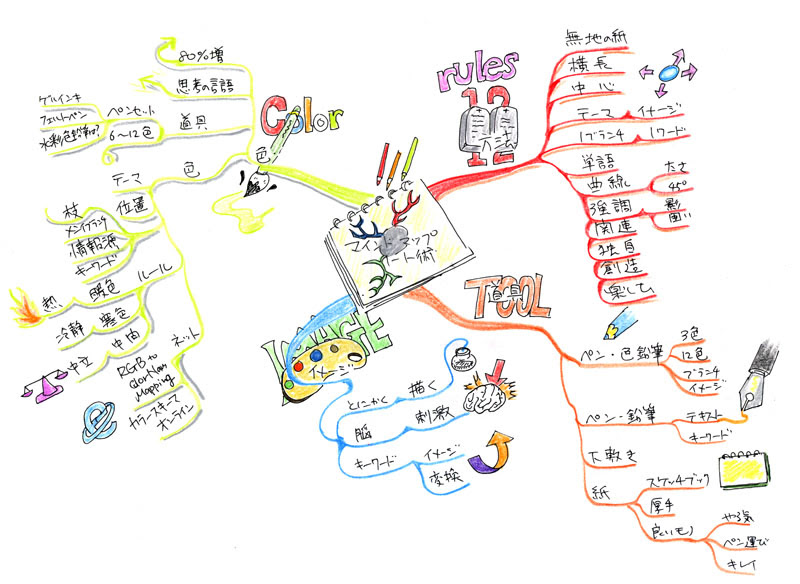 マインドマップ
ノート術
rules
12
12の法則
無地の紙
横長
中心
テーマ
イメージ
1ブランチ
1ワード
単語
曲線
太さ
45°
強調
影
囲い
関連
独自
創造
楽しむ
TOOL
道具
ペン・色鉛筆
3色
12色
ブランチ
イメージ
ペン・鉛筆
テキスト
キーワード
下敷き
紙
スケッチブック
厚手
良いモノ
やる気
ペン運び
キレイ
IMAGE
イメージ
とにかく
描く
脳
刺激
キーワード
イメージ
変換
Color
色
80%増
思考の言語
道具
ペンセット
ゲルインキ
フェルトペン
水彩色鉛筆
6〜12色
色
テーマ
位置
枝
メインブランチ
情報源
キーワード
ルール
暖色
熱
寒色
冷静
中間
中立
ネット
RGB to
Mapping
カラースキーマ
オンライン